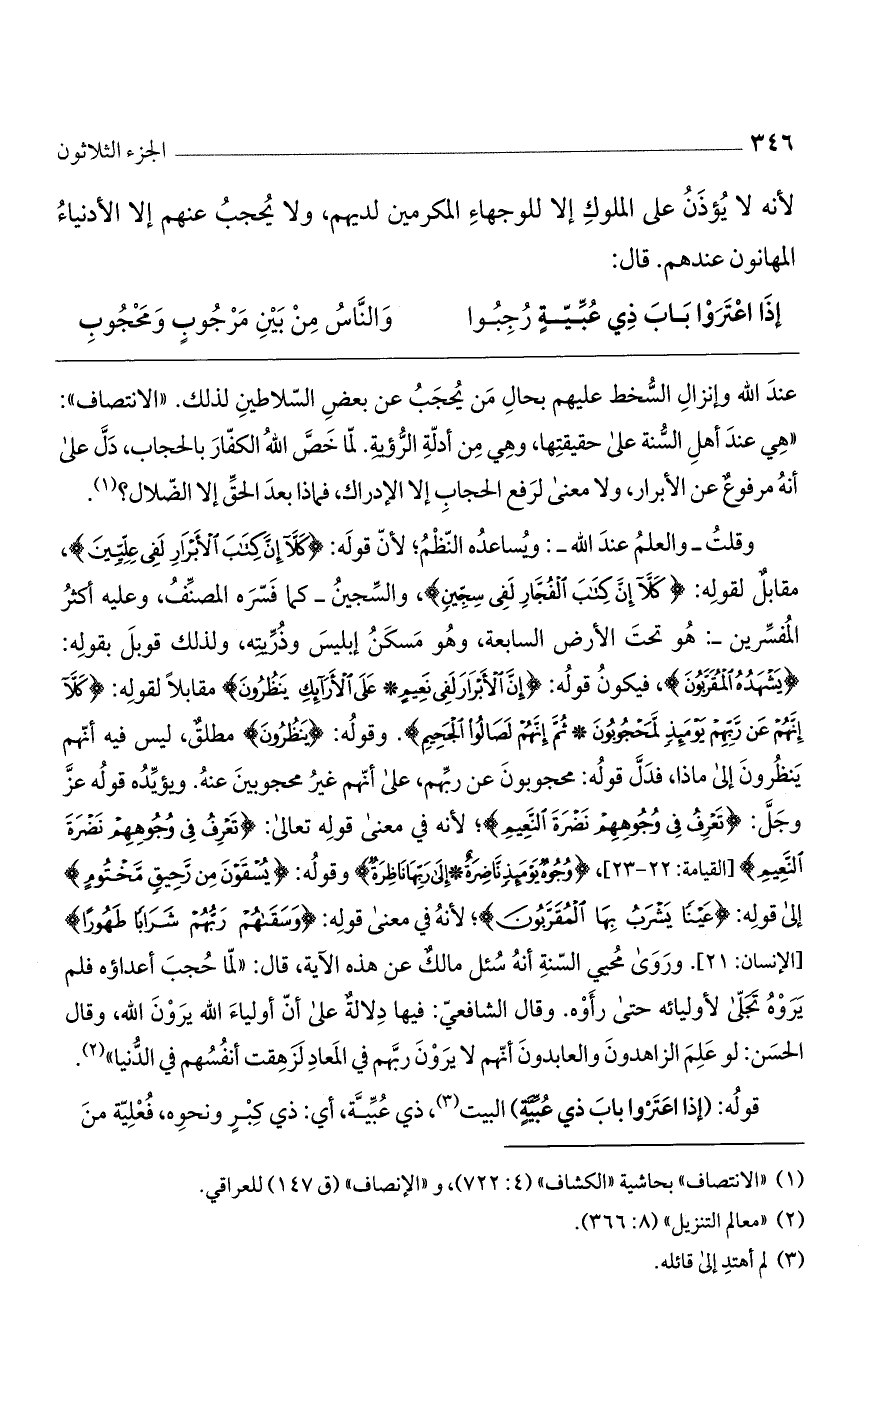 ٣٤٦ الجزء الثلاثون
لأنه لا يُؤذَنُ على الملوكِ إلا للوجهاءِ المكرمين لديهم، ولا يُحجبُ عنهم إلا الأدنياءُ
المهانون عندهم. قال:
إذَا اعْتَرَوْا بَـابَ ذِي عُبِّـيَّـــةٍ رُجِبُـوا وَالنَّاسُ مِنْ بَيْنِ مَرْجُوبٍ وَمَحْجُوبِ
عندَ الله وإنزالِ السُّخط عليهم بحالِ مَن يُحجَبُ عن بعضِ السّلاطينِ لذلك. «الانتصاف»:
«هِي عندَ أهلِ السُّنة علىٰ حقيقتِها، وهي مِن أدلّةِ الرُّؤيةِ. لمّا خَصَّ اللهُ الكفّارَ بالحجاب، دَلَّ علىٰ
أنهُ مرفوعٌ عن الأبرار، ولا معنىٰ لرَفع الحجابِ إلا الإدراك، فماذا بعدَ الحقِّ إلا الضّلال؟(١).
وقلتُ ـ والعلمُ عندَ الله ـ: ويُساعدُه النّظْمُ؛ لأنّ قولَه: ﴿كَلَّآ إِنَّ كِتَٰبَ ٱلْأَبْرَارِ لَفِى عِلِّيِّينَ﴾،
مقابلٌ لقولِه: ﴿كَلَّآ إِنَّ كِتَٰبَ ٱلْفُجَّارِ لَفِى سِجِّينٍ﴾، والسِّجينُ ـ كما فَسّرَه المصنِّفُ، وعليه أكثرُ
المُفسِّرين ـ: هُو تحتَ الأرض السابعة، وهُو مَسكَنُ إبليسَ وذُرِّيتِه، ولذلك قوبلَ بقولِه:
﴿يَشْهَدُهُ ٱلْمُقَرَّبُونَ﴾، فيكونُ قولُه: ﴿إِنَّ ٱلْأَبْرَارَ لَفِى نَعِيمٍ * عَلَى ٱلْأَرَآئِكِ يَنظُرُونَ﴾ مقابلاً لقولِه: ﴿كَلَّآ
إِنَّهُمْ عَن رَّبِّهِمْ يَوْمَئِذٍ لَّمَحْجُوبُونَ * ثُمَّ إِنَّهُمْ لَصَالُوا۟ ٱلْجَحِيمِ﴾. وقولُه: ﴿يَنظُرُونَ﴾ مطلقٌ، ليس فيه أنّهم
يَنظُرونَ إلىٰ ماذا، فدَلَّ قولُه: محجوبونَ عن ربِّهم، علىٰ أنّهم غيرُ محجوبينَ عنهُ. ويؤيِّدُه قولُه عزَّ
وجَلَّ: ﴿تَعْرِفُ فِى وُجُوهِهِمْ نَضْرَةَ ٱلنَّعِيمِ﴾؛ لأنه في معنىٰ قولِه تعالىٰ: ﴿تَعْرِفُ فِى وُجُوهِهِمْ نَضْرَةَ
ٱلنَّعِيمِ﴾ [القيامة: ٢٢-٢٣]، ﴿وُجُوهٌ يَوْمَئِذٍ نَّاضِرَةٌ * إِلَىٰ رَبِّهَا نَاظِرَةٌ﴾ وقولُه: ﴿يُسْقَوْنَ مِن رَّحِيقٍ مَّخْتُومٍ﴾
إلىٰ قولِه: ﴿عَيْنًا يَشْرَبُ بِهَا ٱلْمُقَرَّبُونَ﴾؛ لأنهُ في معنىٰ قولِه: ﴿وَسَقَىٰهُمْ رَبُّهُمْ شَرَابًا طَهُورًا﴾
[الإنسان: ٢١]. ورَوَىٰ مُحيي السّنةِ أنهُ سُئل مالكٌ عن هذه الآية، قال: «لمّا حُجبَ أعداؤه فلم
يَرَوْهُ تَجلّىٰ لأوليائه حتىٰ رأَوْه. وقال الشافعيّ: فيها دِلالةٌ علىٰ أنّ أولياءَ الله يرَوْنَ الله، وقال
الحسَن: لو عَلِمَ الزاهدونَ والعابدونَ أنّهم لا يرَوْنَ ربَّهم في المَعادِ لَزَهِقت أنفُسُهم في الدُّنيا»(٢).
قولُه: (إذا اعتَرَوا بابَ ذي عُبِّيَّةٍ) البيت(٣)، ذي عُبِّيَّة، أي: ذي كِبْرٍ ونحوِه، فُعْلِيّة منَ
(١) «الانتصاف» بحاشية «الكشاف» (٤: ٧٢٢)، و «الإنصاف» (ق ١٤٧) للعراقي.
(٢) «معالم التنزيل» (٨: ٣٦٦).
(٣) لم أهتدِ إلىٰ قائله.